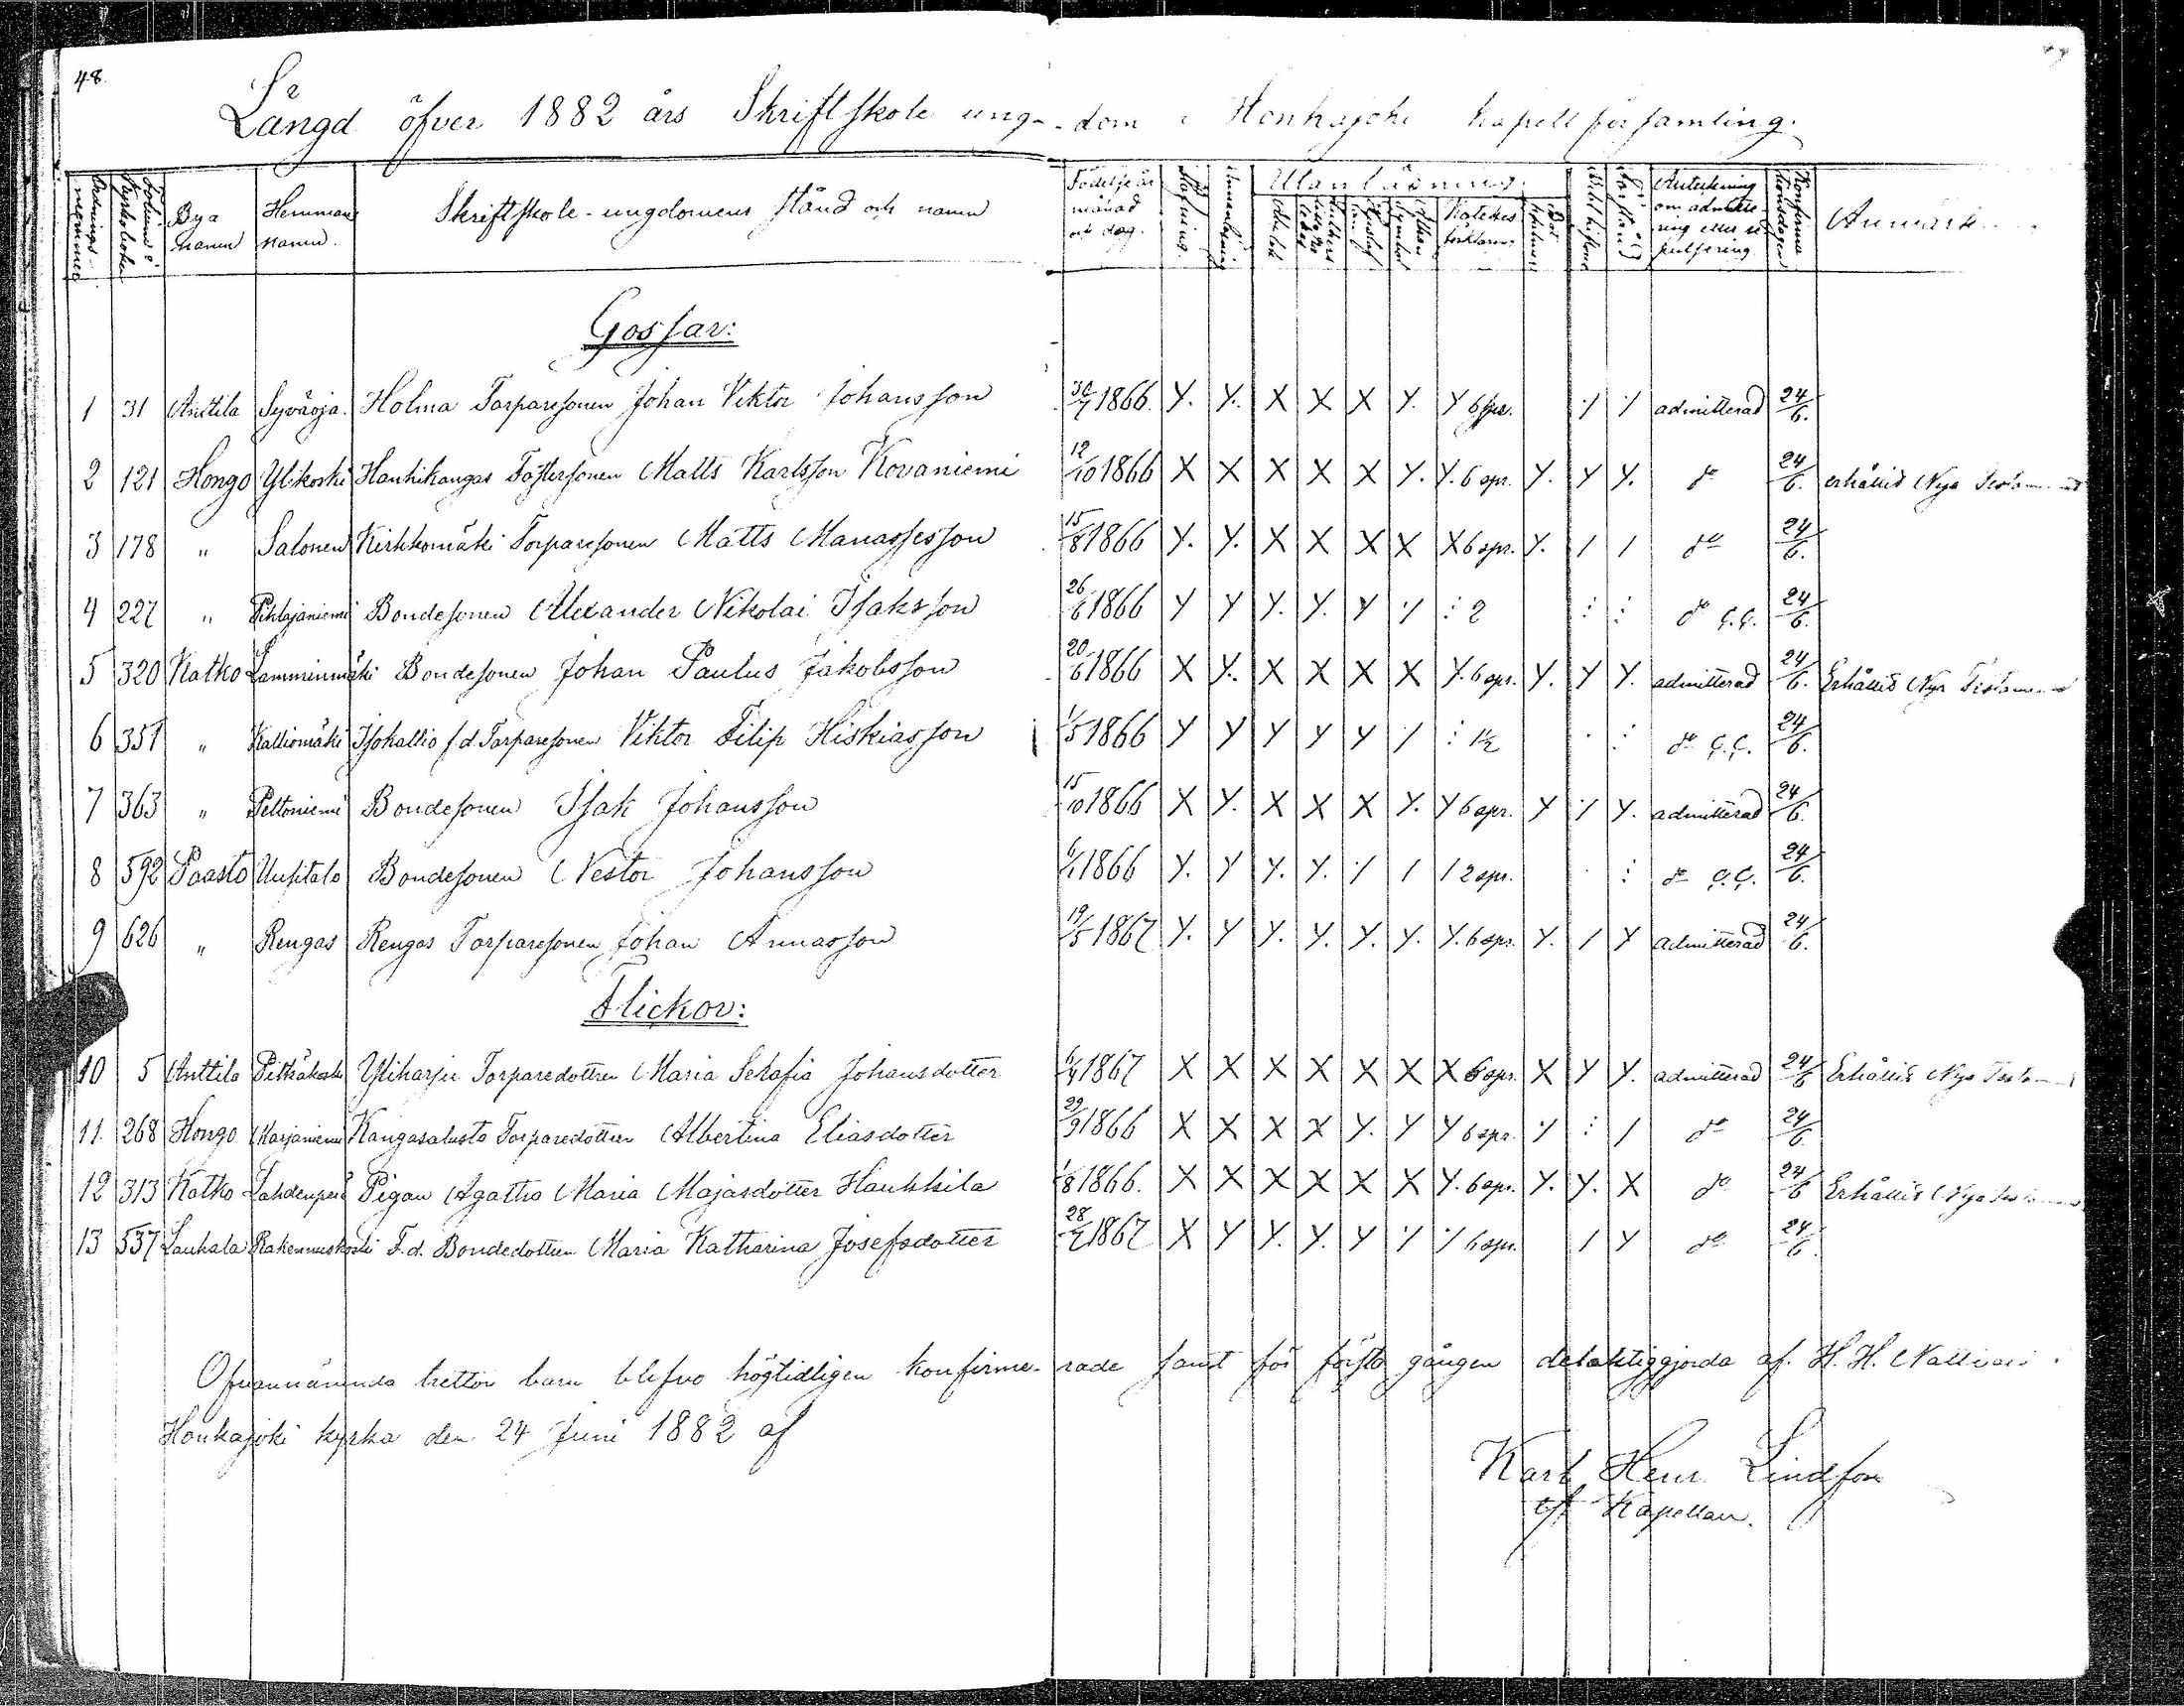 48.
Längd öfver 1882 års Skriftskole ung-dom i Honkajoki kapellförsamling.
Ordningsnummer Folium i Kyrkoboken Bya namn Hemmans namn. Skriftskole-ungdomens stånd och namn Födelseår månad och dag. Stafning. Innanläsning Utanläsning. Katekes förklaring Anteckning om admitte-ring eller re-pulsering Konfirmationsdagen Anmärk
Gossar:
1 31 Anttila Syväoja Holma Torparesonen Johan Viktor Johansson 30/7 1866. Y. Y. X X X Y. Y 6 spr. ·/ ·/ admitterad 24/6.
2 121 Hongo Ylikoski Hanhikangas Fostersonen Matts Karlsson Kovaniemi 12/10 1866 X X X X X Y. Y. 6 spr. Y. Y Y. do 24/6. erhållit Nya Testam
3 178 " Salonen Kirkkomäki Torparesonen Matts Manassesson 15/8 1866 Y. Y. X X X X X 6 spr. Y. / / do 24/6.
4 227 " Pihlajaniemi Bondesonen Alexander Nikolai Isaksson 26/6 1866 Y Y Y. Y. Y ·/ : 2 : : do 24/6.
5 320 Katko Lamminmäki Bondesonen Johan Paulus Jakobsson 20/6 1866 X Y. X X X X Y. 6 spr. Y. Y Y. admitterad 24/6. Erhållit Nya Testam
6 351 " Kalliomäki Isokallio f.d. Torparesonen Viktor Filip Hiskiasson 1/5 1866 Y Y Y Y Y ·/ : 1½ · : do 24/6.
7 363 " Peltoniemi Bondesonen Isak Johansson 15/10 1866 X Y. X X X Y. Y 6 spr. Y ·/ Y. admitterad 24/6.
8 592 Paasto Uusitalo Bondesonen Nestor Johansson 6/1 1866 Y. Y Y. Y. ·/ / / 2 spr. · : do 24/6.
9 626 " Rengas Rengas Torparesonen Johan Annasson 19/5 1867 Y. Y Y. Y. Y. Y. Y. 6 spr. Y. / Y admitterad 24/6.
Flickor:
10 5 Anttila Pitkäkoski Yliharju Torparedottren Maria Serafia Johansdotter 6/4 1867 X X X X X X X 6 spr. X Y Y. admitterad 24/6 Erhållit Nya Testam
11. 268 Hongo Karjaniemi Kangasalusta Torparedottren Albertina Eliasdotter 29/9 1866 X X X X Y. Y Y 6 spr. ·/ : / do 24/6
12 313 Katko Lahdenperä Pigan Agatha Maria Majasdotter Haukkila 1/8 1866. X X X X X X Y. 6 spr. Y. Y. X do 24/6 Erhållit Nya Testam
13 537 Lauhala Rakennuskoski F.d. Bondedottren Maria Katharina Josefsdotter 28/7 1867 X Y Y. Y. Y ·/ ·/ 6 spr. / Y do 24/6
Ofvannämnda tretton barn blefvo högtidligen konfirme-rade samt för första gången delaktiggjorda af H. H. Nattvard i
Honkajoki kyrka den 24 Juni 1882 af
Karl Henr Lindfors
Kapellan.